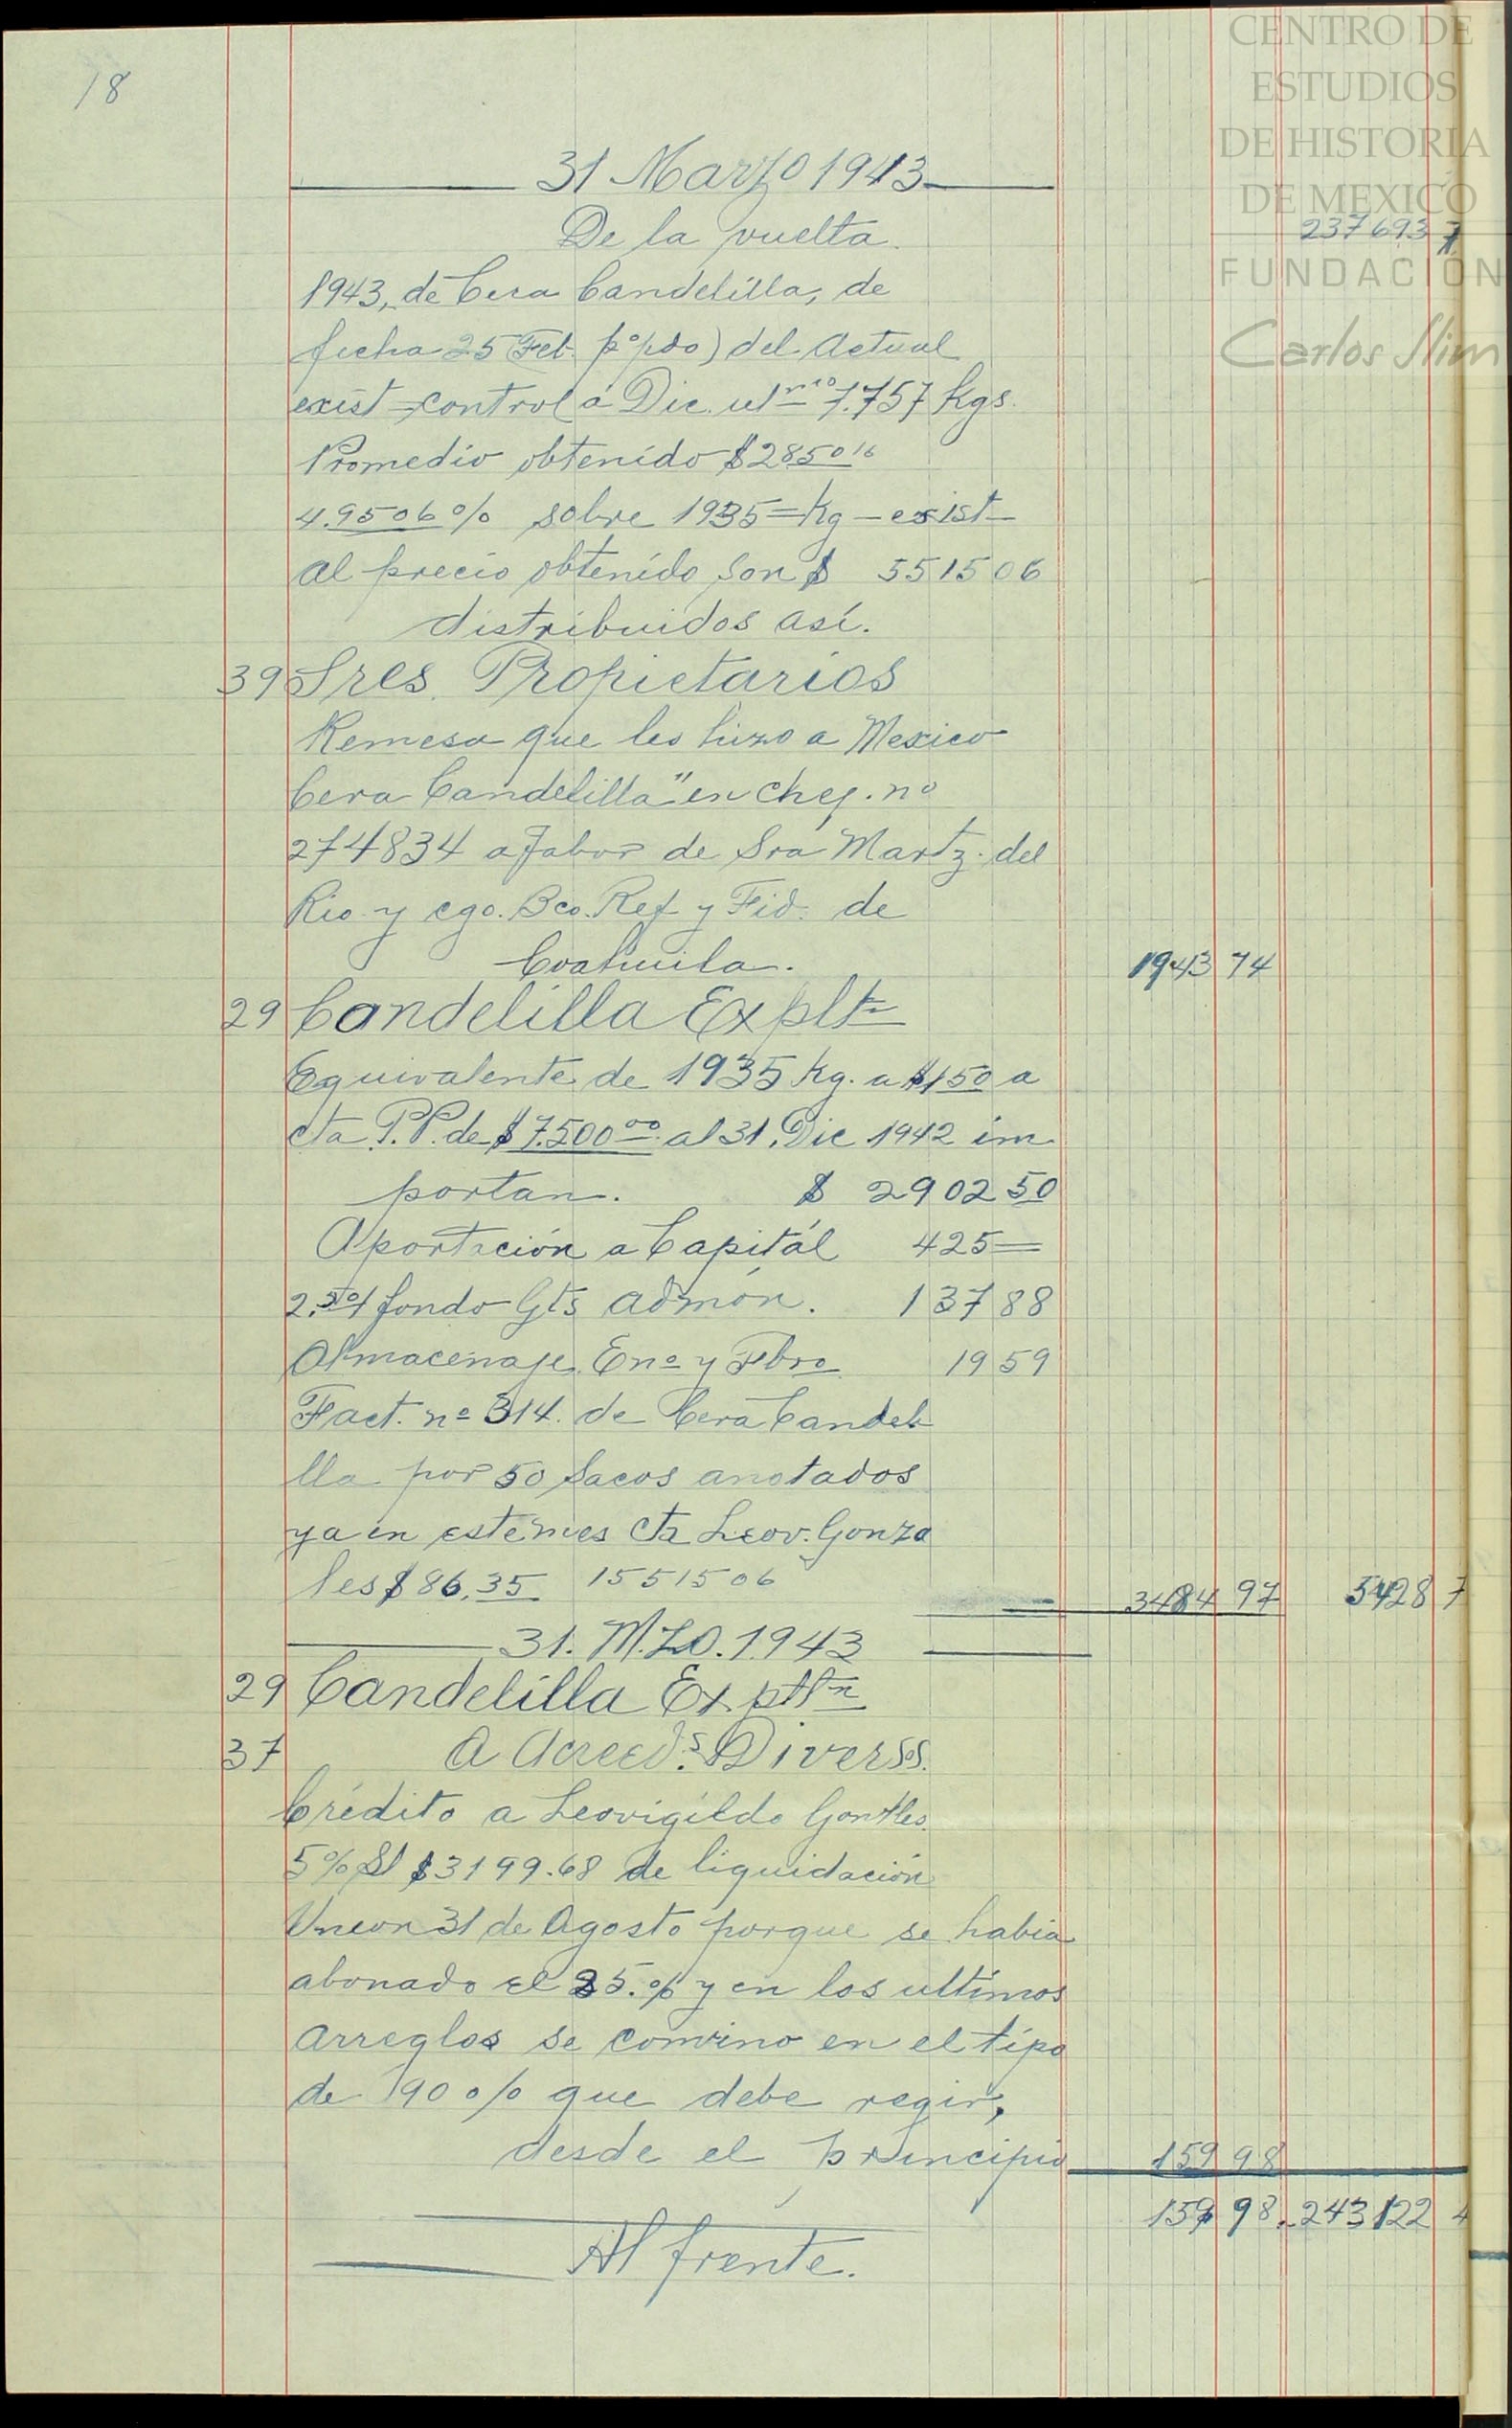 18
CENTRO DE
ESTUDIOS
DE HISTORIA
DE MEXICO
FUNDACIÓN
Carlos Slim
31 Marzo 1943
De la vuelta. 237693 7
1943, de Cera Candelilla, de
fecha 25 Feb. ppdo) del actual
exist control a Dic. 7.757 Kgs.
Promedio obtenido $2850 16
4.9506% sobre 1935= Kg - exist-
al precio obtenido son $ 5515 06
distribuidos así.
39 Sres. Propietarios
Remesa que les hizo a Mexico
Cera Candelilla" en cheq. no
274834 a fabor de Sra Martz. del
Rio y cgo. Bco. Ref y Fid. de
Coahuila. 1943 74
29 Candelilla Expltn
Equivalente de 1935 Kg. a $1 50 a
cta P.P. de $7.500 00 al 31, Dic 1942 im
portan. $ 2902 50
Aportación a Capitál 425=
2.50/ fondo Gts admón. 137 88
Almacenaje Eno y Fbro 19 59
Fact. no 314. de Cera Candeli
lla por 50 Sacos anotados
ya en este mes Cta Leov. Gonza
les $86.35 155 15 06 3484 97 5428 7
31. M.ZO. 1943
29 Candelilla Expltn
37 a Acreeds. Diversos.
Crédito a Leovigildo Gonzles.
5% S/ $3199.68 de liquidación
Union 31 de Agosto porque se habia
abonado el 85.% y en los ultimos
arreglos se convino en el tipo
de 90 % que debe regir,
desde el principio 159 98
159 98. 243122 4
Al frente.